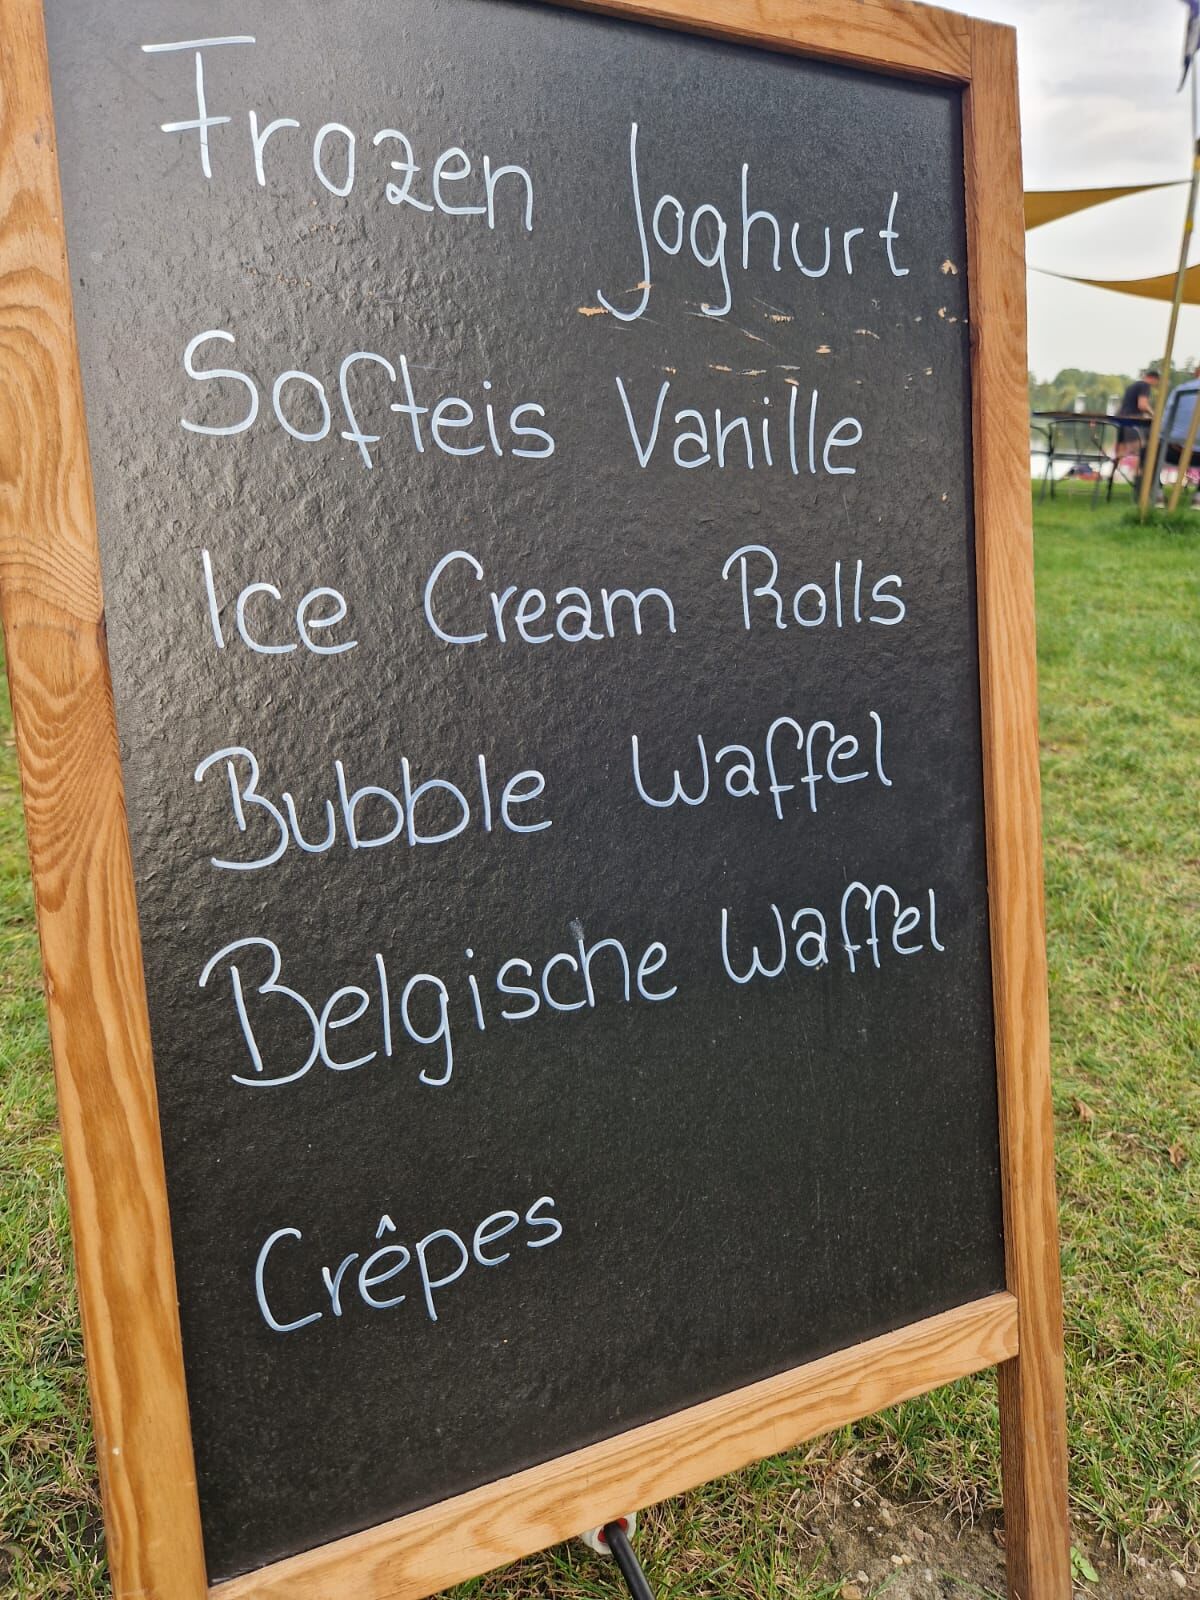 Frozen Joghurt
Softeis Vanille
Ice Cream Rolls
Bubble Waffel
Belgische Waffel
Crêpes